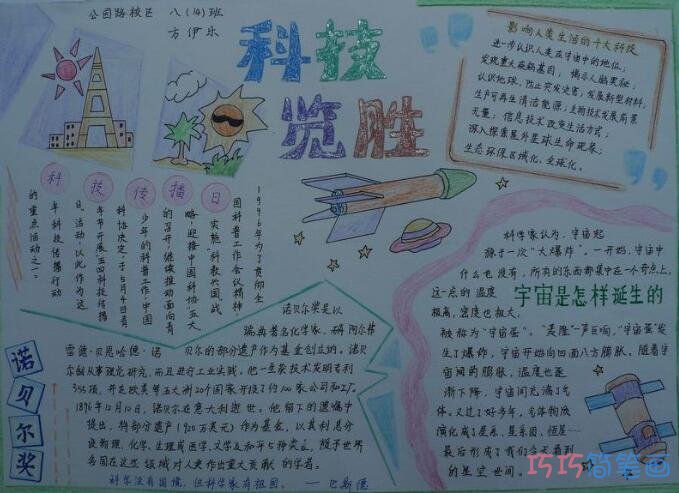 公园路校区 八(14)班
方伊乐
科技
览胜
影响人类生活的十大科技
进一步认识人类在宇宙中的地位;
发现重大疾病基因, 揭示人脑奥秘;
认识地球,防止突发灾害;发展新型材料;
生产可再生清洁能源;生物技术发展前景
无量; 信息技术改变生活方式;
深入探索星外星球生命现象;
生态环保区域化、全球化。
科技传播日
1996年为了贯彻全
国科普工作会议精神
实施"科教兴国战
略,迎接中国科协"五大
的召开,继续推动面向青
少年的科普工作,中国
科协决定,于5月4日青
年节开展"五四科技传播
日"活动,以此作为这
年科技传播行动
的重点活动之一。
诺贝尔奖
诺贝尔奖是以
瑞典著名化学家,硝 阿尔弗
雷德·贝恩哈德·诺 贝尔的部分遗产作为基金创立的。诺贝
尔创从事理论研究,而且进行工业实践。他一生获技术发明专利
355项,并在欧美等五大洲20个国家开设了约100家公司和工厂。
1896年12月10日,诺贝尔在意大利逝世。他留下的遗嘱中
提出,将部分遗产(920万美元)作为基金,以其利息分
设物理,化学,生理或医学,文学及和平5种奖金,授予世界
各国在这些领域对人类作出重大贡献的学者。
科学没有国境,但科学家有祖国。——巴斯德
科学家认为,宇宙起
源于一次"大爆炸"。一开始,宇宙中
什么也没有,所有的东西都集中在一个奇点上,
这一点的温度
宇宙是怎样诞生的
极高,密度也极大,
被称为"宇宙蛋"。"轰隆"一声巨响,"宇宙蛋"发
生了爆炸,宇宙开始向四面八方膨胀。随着宇
宙间的膨胀,温度也逐
渐下降,宇宙间充满了气
体。又过了好多年,气体物质
演化成了星系,星系团,恒星……
最后形成了我们今天看到
的星空世间。
巧巧简笔画